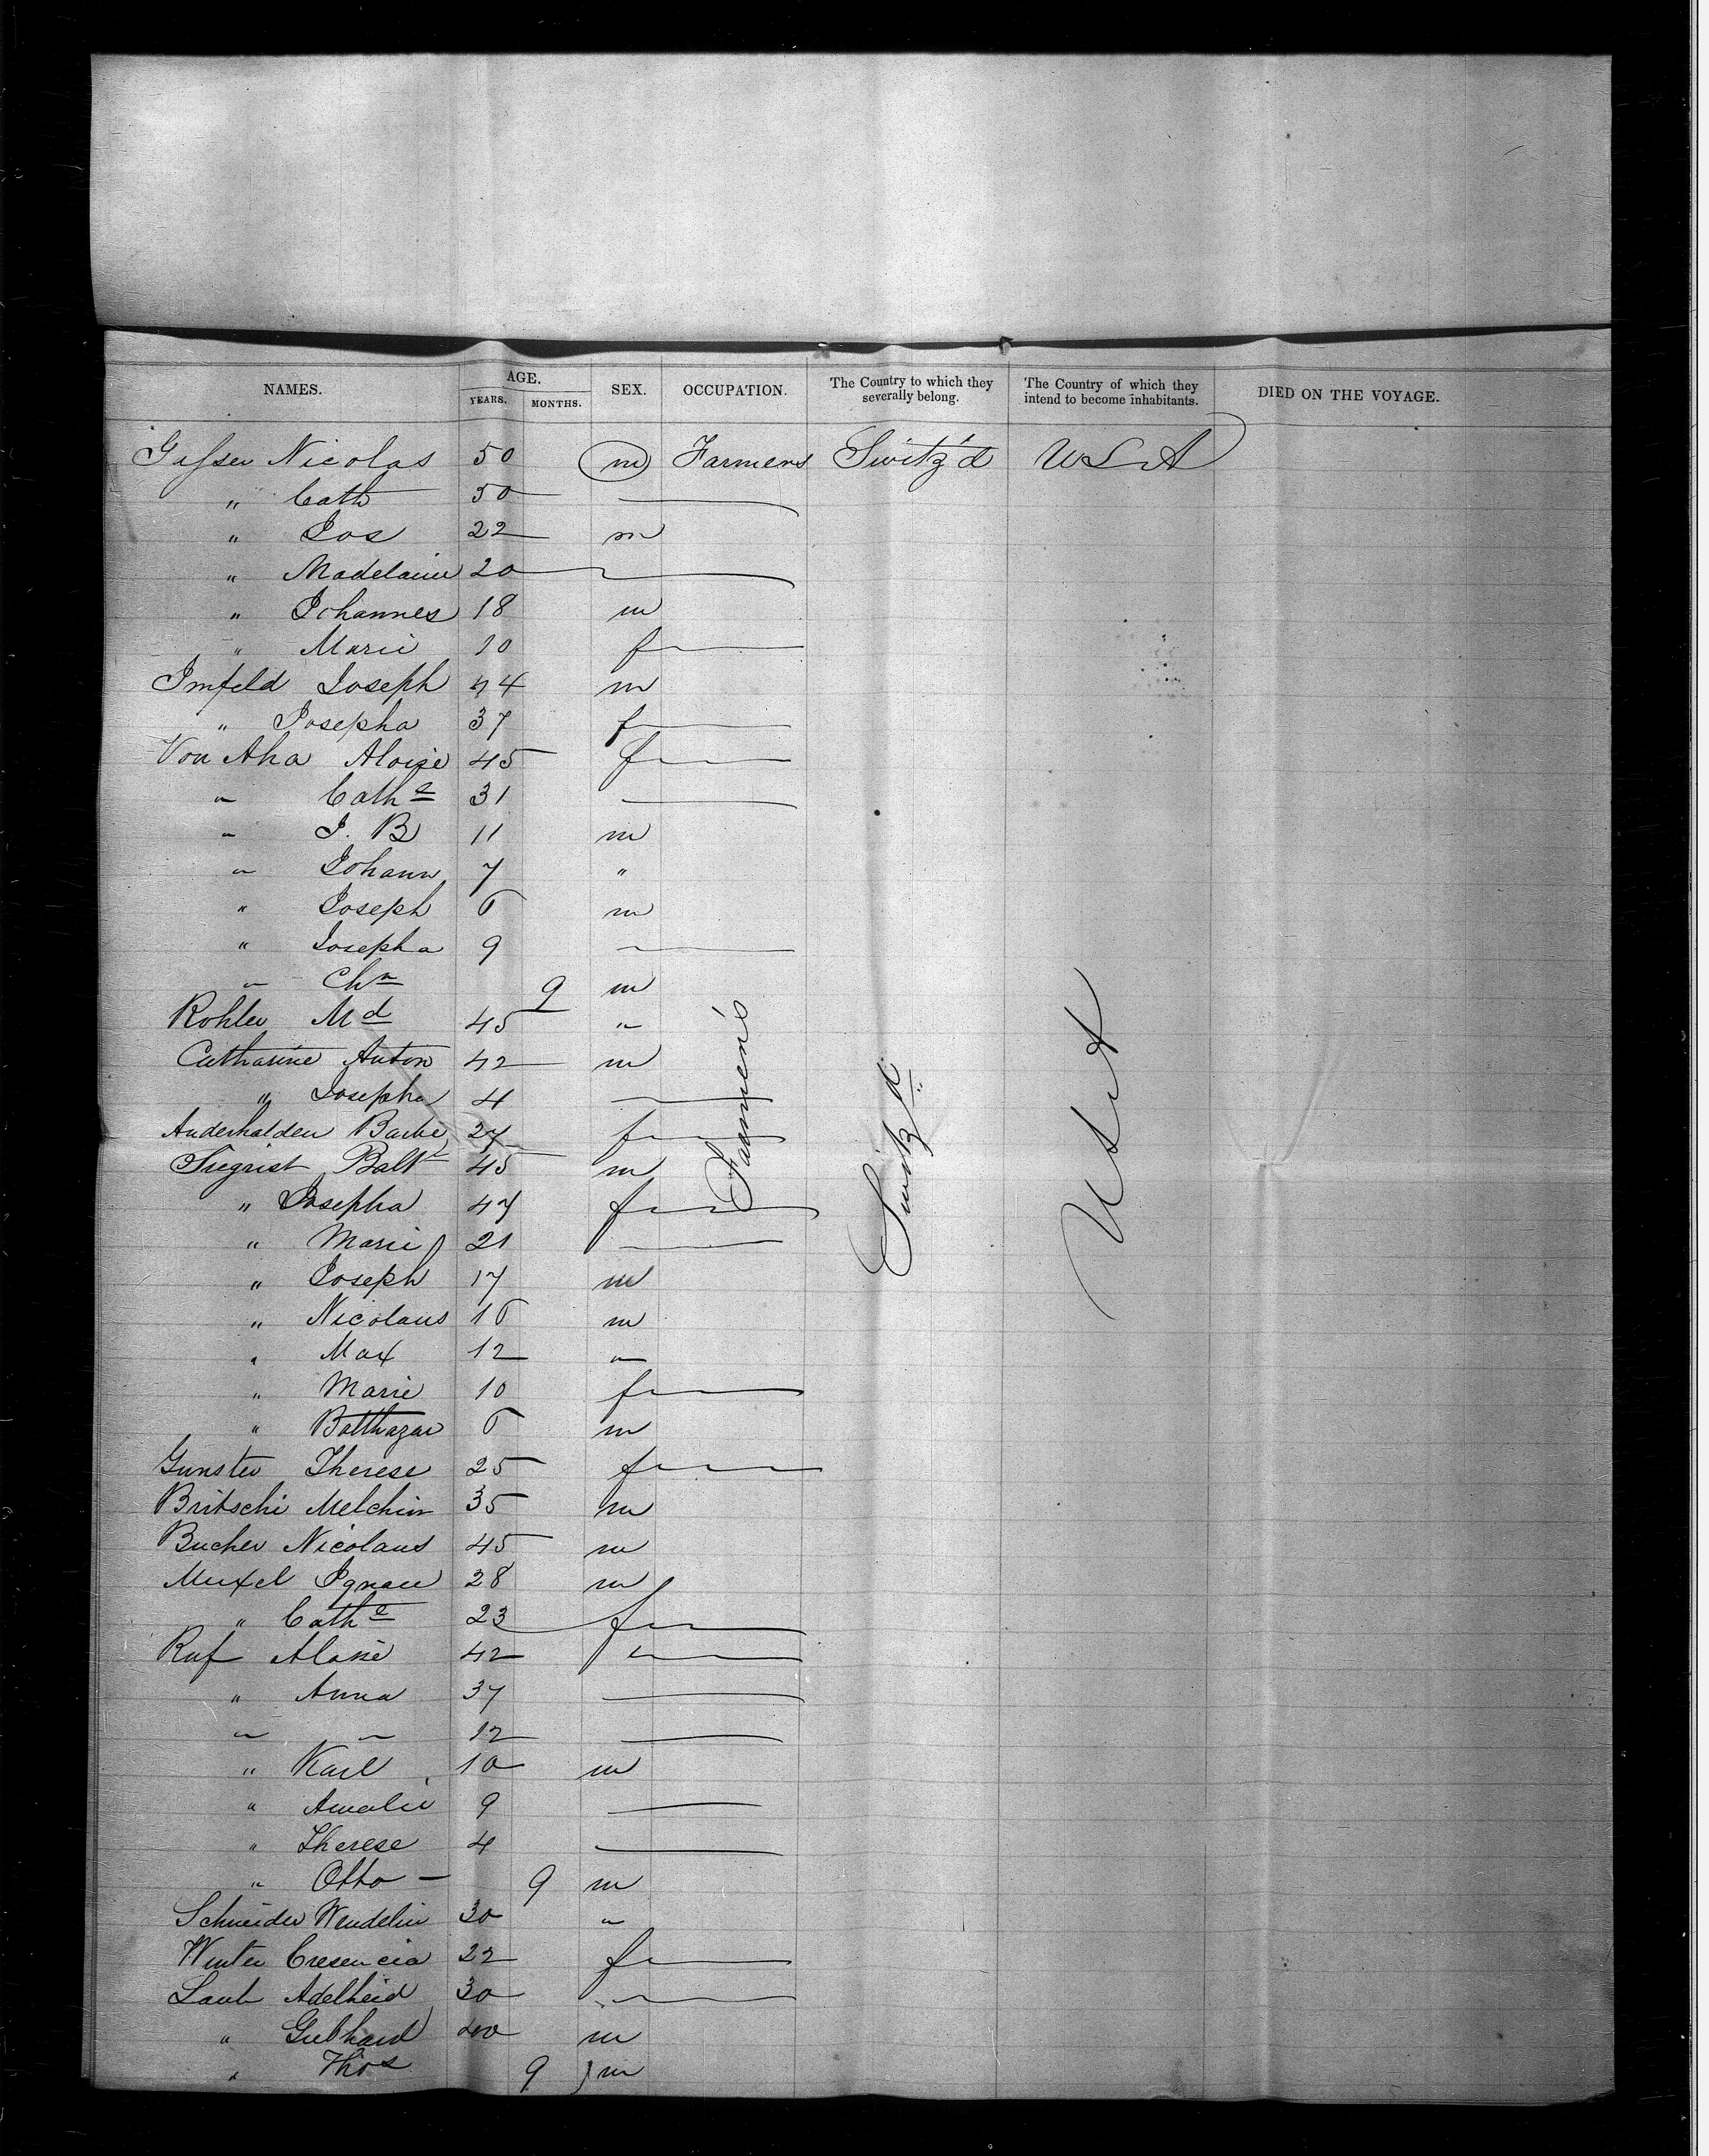 NAMES. AGE. YEARS. MONTHS. SEX. OCCUPATION. The Country to which they severally belong. The Country of which they intend to become inhabitants. DIED ON THE VOYAGE.
Gasser Nicolas 50 m Farmers Switz'd USA
" Cath 50
" Jos 22 m
" Madelaine 20
" Johannes 18 m
" Marie 10 f
Imfeld Joseph 44 m
" Josepha 37 f
Von Aha Aloise 45 f
" Cathe 31
" J. B 11 m
" Johann 7 "
" Joseph 6 m
" Josepha 9
" Chn 9 m
Rohler Md 45 "
Catharine Anton 42 m
" Josepha 4
Anderhalden Barbe 27 f
Siegrist Balt 45 m
" Josepha 47 f
" Marie 21
" Joseph 17 m
" Nicolaus 16 m
" Max 12 "
" Marie 10 f
" Balthazar 6 m
Farmers
Switzd
USA
Gunster Therese 25 f
Britschi Melchior 35 m
Bucher Nicolaus 45 m
Muxel Ignace 28 m
" Cathe 23 f
Ruf Aloise 42 "
" Anna 37
" " 12
" Karl 10 m
" Amalie 9
" Therese 4
" Otto - 9 m
Schneider Wendelin 30 "
Winter Cresencia 22 f
Laub Adelheid 30 "
" Gebhard m
" Thos 9 m